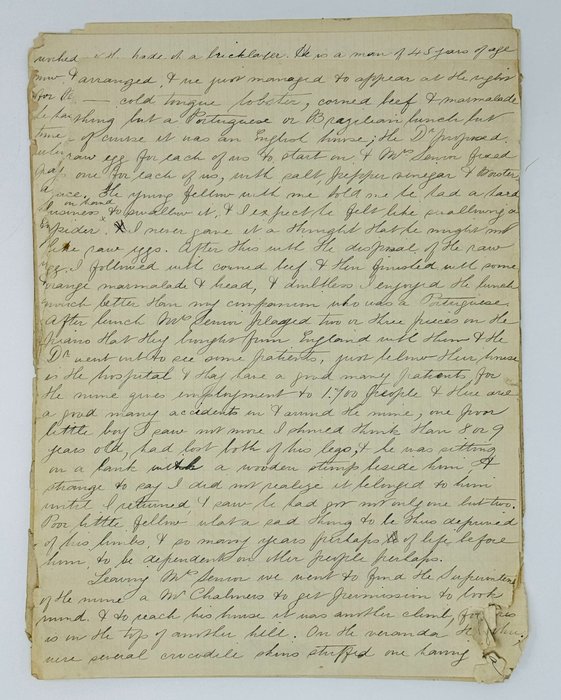 trade of a bricklayer. He is a man of 45 years of age
arranged, & we just managed to appear at the right
— cold tongue lobster, corned beef & marmalade
thing but a Portuguese or Brazilian lunch but
of course it was an English house; the Dr proposed
raw egg for each of us to start on, & Mrs Senior fixed
one for each of us, with salt, pepper vinegar & Worster
The young fellow with me told me he had a hard
business on hand to swallow it, & I expect he felt like swallowing a
spider. I never gave it a thought that he might not
like raw eggs. After this with the disposal of the raw
egg. I followed with corned beef & then finished with some
orange marmalade & bread, & doubtless I enjoyed the lunch
much better than my companion who was a Portuguese
After lunch Mrs Senior played two or three pieces on the
piano that they brought from England with them & the
Dr went out to see some patients, just below their house
is the hospital & they have a good many patients for
the mine gives employment to 1.700 people & there are
a good many accidents in & around the mine; one poor
little boy I saw not more I should think than 8 or 9
years old, had lost both of his legs, & he was sitting
on a bank with a wooden stump beside him,
strange to say I did not realize it belonged to him
until I returned, & saw he had got not only one but two.
Poor little fellow what a sad thing to be thus deprived
of his limbs, & so many years perhaps of life before
him, to be dependent on other people perhaps.
Leaving Mrs Senior we went to find the Superinten
of the mine a Mr Chalmers to get permission to look
round. & to reach his house it was another climb, for this
is on the top of another hill. On the veranda
were several crocodile skins stuffed one having